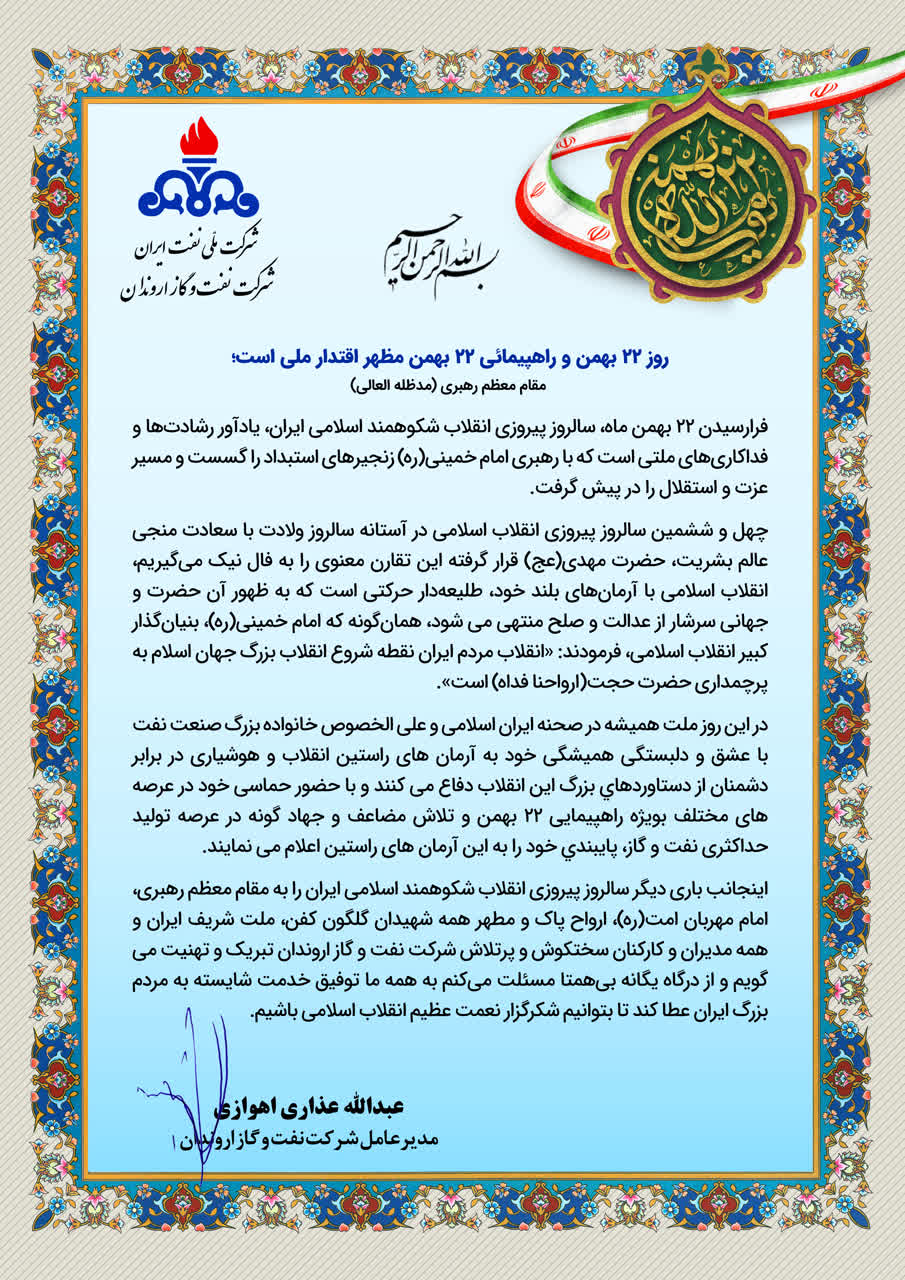 شرکت ملی نفت ایران
شرکت نفت و گاز اروندان
بسم الله الرحمن الرحیم
روز ۲۲ بهمن و راهپیمائی ۲۲ بهمن مظهر اقتدار ملی است؛
مقام معظم رهبری (مدظله العالی)
فرارسیدن ۲۲ بهمن ماه، سالروز پیروزی انقلاب شکوهمند اسلامی ایران، یادآور رشادت‌ها و
فداکاری‌های ملتی است که با رهبری امام خمینی(ره) زنجیرهای استبداد را گسست و مسیر
عزت و استقلال را در پیش گرفت.
چهل و ششمین سالروز پیروزی انقلاب اسلامی در آستانه سالروز ولادت با سعادت منجی
عالم بشریت، حضرت مهدی(عج) قرار گرفته این تقارن معنوی را به فال نیک می‌گیریم،
انقلاب اسلامی با آرمان‌های بلند خود، طلیعه‌دار حرکتی است که به ظهور آن حضرت و
جهانی سرشار از عدالت و صلح منتهی می شود، همان‌گونه که امام خمینی(ره)، بنیان‌گذار
کبیر انقلاب اسلامی، فرمودند: «انقلاب مردم ایران نقطه شروع انقلاب بزرگ جهان اسلام به
پرچمداری حضرت حجت(ارواحنا فداه) است».
در این روز ملت همیشه در صحنه ایران اسلامی و علی الخصوص خانواده بزرگ صنعت نفت
با عشق و دلبستگی همیشگی خود به آرمان های راستین انقلاب و هوشیاری در برابر
دشمنان از دستاوردهاي بزرگ این انقلاب دفاع می کنند و با حضور حماسی خود در عرصه
های مختلف بویژه راهپیمایی ۲۲ بهمن و تلاش مضاعف و جهاد گونه در عرصه تولید
حداکثری نفت و گاز، پایبندي خود را به این آرمان های راستین اعلام می نمایند.
اینجانب باری دیگر سالروز پیروزی انقلاب شکوهمند اسلامی ایران را به مقام معظم رهبری،
امام مهربان امت(ره)، ارواح پاک و مطهر همه شهیدان گلگون کفن، ملت شریف ایران و
همه مدیران و کارکنان سختکوش و پرتلاش شرکت نفت و گاز اروندان تبریک و تهنیت می
گویم و از درگاه یگانه بی‌همتا مسئلت می‌کنم به همه ما توفیق خدمت شایسته به مردم
بزرگ ایران عطا کند تا بتوانیم شکرگزار نعمت عظیم انقلاب اسلامی باشیم.
عبدالله عذاری اهوازی
مدیرعامل شرکت نفت و گاز اروندان